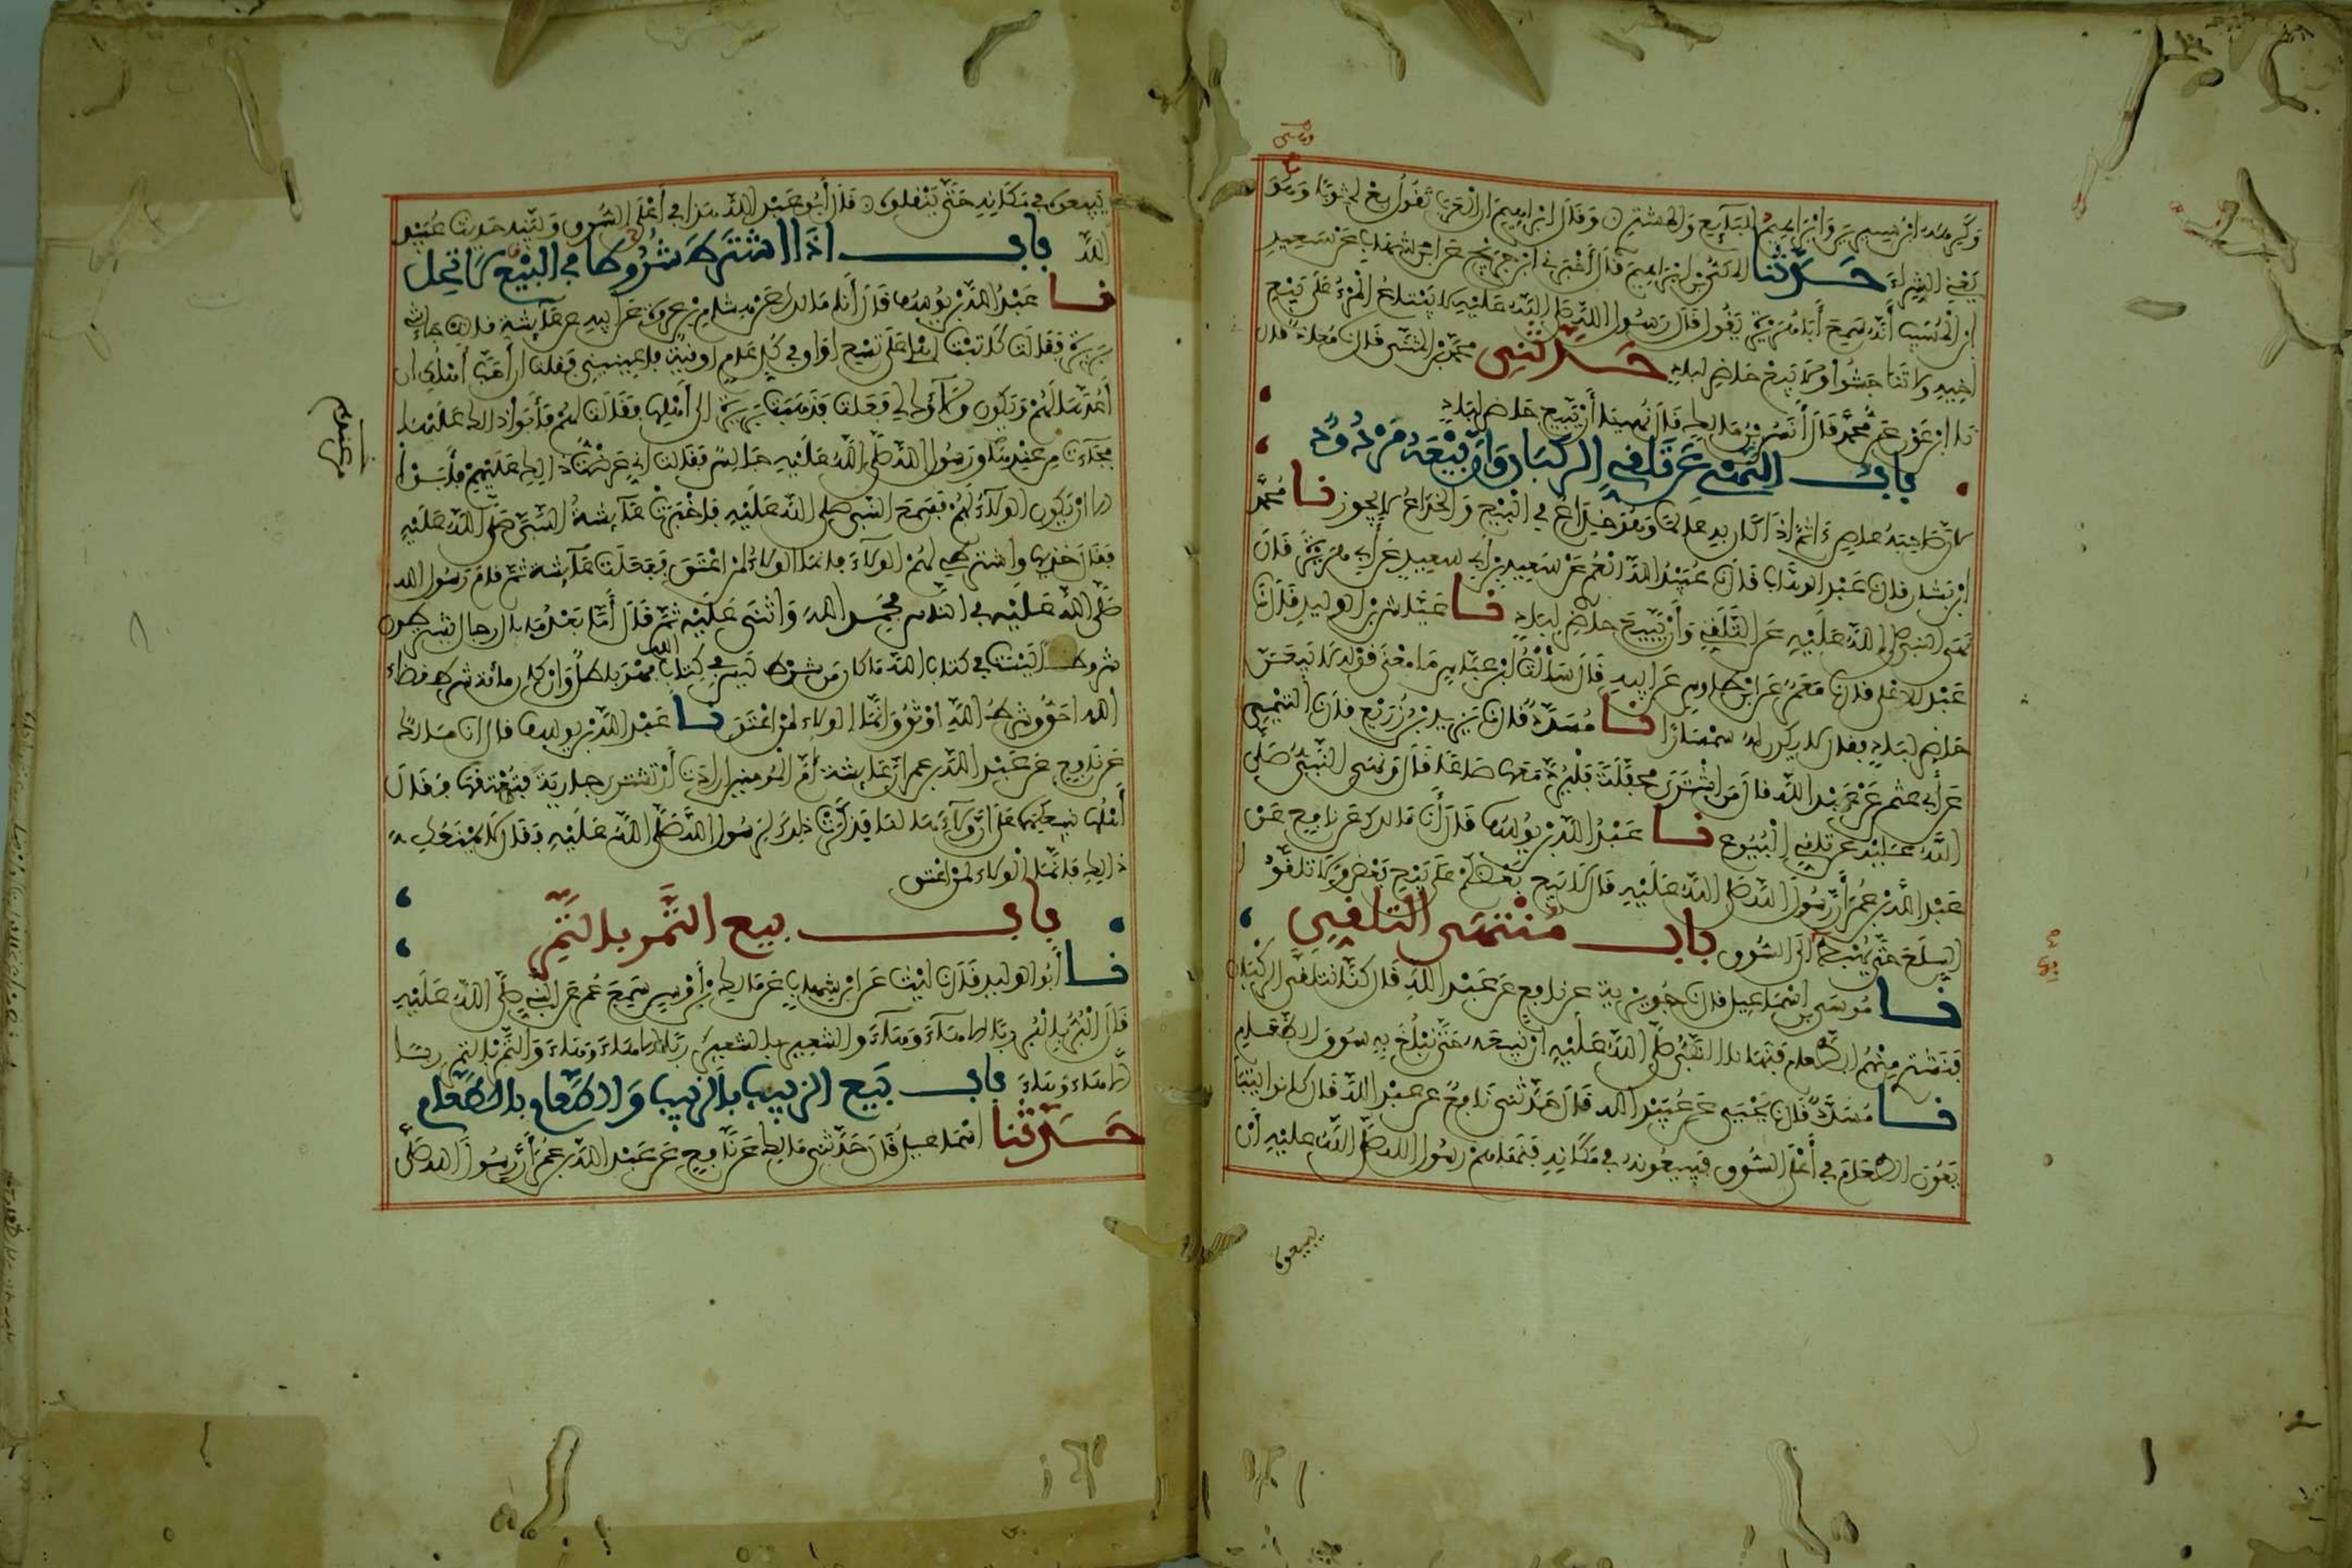 وَكَرِهَهُ ابْنُ سِيرِينَ وَإِبْرَاهِيمُ لِلْبَآيِعِ وَالمُشْتَرِي وَقَالَ إِبْرَاهِيمُ إِنَّ الْعَرَبَ تَقُولُ بِعْ لِي ثَوْبًا وَهُوَ
يَعْنِي الشِّرَاءَ حَدَّثَنَا المَكِّيُّ بْنُ إِبْرَاهِيمَ قَالَ أَخْبَرَنِي ابْنُ جُرَيْجٍ عَنِ ابْنِ شِهَابٍ عَنْ سَعِيدِ
ابْنِ الْمُسَيِّبِ أَنَّهُ سَمِعَ أَبَا هُرَيْرَةَ يَقُولُ قَالَ رَسُولُ اللَّهِ صَلَّى اللَّهُ عَلَيْهِ لَا يَبْتَاعُ الْمَرْءُ عَلَى بَيْعِ
أَخِيهِ وَلَا تَنَاجَشُوا وَلَا يَبِيعُ حَاضِرٌ لِبَادٍ حَدَّثَنِي مُحَمَّدُ بْنُ المُثَنَّى قَالَ نَا مُعَاذٌ قَالَ
نَا ابْنُ عَوْنٍ عَنْ مُحَمَّدٍ قَالَ أَنَسُ بْنُ مَالِكٍ قَالَ نُهِينَا أَنْ يَبِيعَ حَاضِرٌ لِبَادٍ
بَابُ النَّهْيِ عَنْ تَلَقِّي الرُّكْبَانِ وَأَنَّ بَيْعَهُ مَرْدُودٌ
لِأَنَّ صَاحِبَهُ عَاصٍ آثِمٌ إِذَا كَانَ بِهِ عَالِمًا وَهُوَ خِدَاعٌ فِي الْبَيْعِ وَالخِدَاعُ لَا يَجُوزُ نا مُحَمَّدُ
ابْنُ بَشَّارٍ قَالَ نَا عَبْدُ الوَهَّابِ قَالَ نَا عُبَيْدُ اللَّهِ الْعُمَرِيُّ عَنْ سَعِيدِ بْنِ أَبِي سَعِيدٍ عَنْ أَبِي هُرَيْرَةَ قَالَ
نَهَى النَّبِيُّ صَلَّى اللَّهُ عَلَيْهِ عَنِ التَّلَقِّي وَأَنْ يَبِيعَ حَاضِرٌ لِبَادٍ نا عَيَّاشُ بْنُ الوَلِيدِ قَالَ نَا
عَبْدُ الأَعْلَى قَالَ نَا مَعْمَرٌ عَنِ ابْنِ طَاوُسٍ عَنْ أَبِيهِ قَالَ سَأَلْتُ ابْنَ عَبَّاسٍ مَا مَعْنَى قَوْلِهِ لَا يَبِيعَنَّ
حَاضِرٌ لِبَادٍ فَقَالَ لَا يَكُونُ لَهُ سِمْسَارًا نا مُسَدَّدٌ قَالَ نَا يَزِيدُ بْنُ زُرَيْعٍ قَالَ نَا التَّيْمِيُّ
عَنْ أَبِي عُثْمَانَ عَنْ عَبْدِ اللَّهِ قَالَ مَنِ اشْتَرَى مُحَفَّلَةً فَلْيَرُدَّ مَعَهَا صَاعًا قَالَ وَنَهَى النَّبِيُّ صَلَّى
اللَّهُ عَلَيْهِ عَنْ تَلَقِّي الْبُيُوعِ نا عَبْدُ اللَّهِ بْنُ يُوسُفَ قَالَ أَنَا مَالِكٌ عَنْ نَافِعٍ عَنْ
عَبْدِ اللَّهِ بْنِ عُمَرَ أَنَّ رَسُولَ اللَّهِ صَلَّى اللَّهُ عَلَيْهِ قَالَ لَا يَبِيعُ بَعْضُكُمْ عَلَى بَيْعِ بَعْضٍ وَلَا تَلَقَّوُا
السِّلَعَ حَتَّى يُهْبَطَ بِهَا إِلَى السُّوقِ بَابُ مُنْتَهَى التَّلَقِّي
نا مُوسَى بْنُ إِسْمَاعِيلَ قَالَ نَا جُوَيْرِيَةُ عَنْ نَافِعٍ عَنْ عَبْدِ اللَّهِ قَالَ كُنَّا نَتَلَقَّى الرُّكْبَانَ
فَنَشْتَرِي مِنْهُمُ الطَّعَامَ فَنَهَانَا النَّبِيُّ صَلَّى اللَّهُ عَلَيْهِ أَنْ نَبِيعَهُ حَتَّى نَبْلُغَ بِهِ سُوقَ الطَّعَامِ
نا مُسَدَّدٌ قَالَ نَا يَحْيَى عَنْ عُبَيْدِ اللَّهِ قَالَ حَدَّثَنِي نَافِعٌ عَنْ عَبْدِ اللَّهِ قَالَ كَانُوا يَبْتَا
يَعُونَ الطَّعَامَ فِي أَعْلَى السُّوقِ فَيَبِيعُونَهُ فِي مَكَانِهِ فَنَهَاهُمْ رَسُولُ اللَّهِ صَلَّى اللَّهُ عَلَيْهِ أَنْ
يبيعوه
يَبِيعُوهُ فِي مَكَانِهِ حَتَّى يَنْقُلُوهُ قَالَ أَبُو عَبْدِ اللَّهِ هَذَا فِي أَعْلَى السُّوقِ وَيُبَيِّنُهُ حَدِيثُ عُبَيْدِ
اللَّهِ بَابُ إِذَا اشْتَرَطَ شُرُوطًا فِي البَيْعِ لَا تَحِلُّ
نا عَبْدُ اللَّهِ بْنُ يُوسُفَ قَالَ أَنَا مَالِكٌ عَنْ هِشَامِ بْنِ عُرْوَةَ عَنْ أَبِيهِ عَنْ عَآئِشَةَ قَالَتْ جَاءَتْنِي
بَرِيرَةُ فَقَالَتْ كَاتَبْتُ أَهْلِي عَلَى تِسْعِ أَوَاقٍ فِي كُلِّ عَامٍ أُوقِيَّةٌ فَأَعِينِينِي فَقُلْتُ إِنْ أَحَبَّ أَهْلُكِ أَنْ
أَعُدَّهَا لَهُمْ وَيَكُونَ وَلَآؤُكِ لِي فَعَلْتُ فَذَهَبَتْ بَرِيرَةُ إِلَى أَهْلِهَا فَقَالَتْ لَهُمْ فَأَبَوْا ذَلِكَ عَلَيْهَا
فَجَآءَتْ مِنْ عِنْدِهِمْ وَرَسُولُ اللَّهِ صَلَّى اللَّهُ عَلَيْهِ جَالِسٌ فَقَالَتْ إِنِّي عَرَضْتُ ذَلِكَ عَلَيْهِمْ فَأَبَوْا
إِلَّا أَنْ يَكُونَ الوَلَآءُ لَهُمْ فَسَمِعَ النَّبِيُّ صَلَّى اللَّهُ عَلَيْهِ فَأَخْبَرَتْ عَآئِشَةُ النَّبِيَّ صَلَّى اللَّهُ عَلَيْهِ
فَقَالَ خُذِيهَا وَاشْتَرِطِي لَهُمُ الوَلَآءَ فَإِنَّمَا الوَلَاءُ لِمَنْ أَعْتَقَ فَفَعَلَتْ عَآئِشَةُ ثُمَّ قَامَ رَسُولُ اللَّهِ
صَلَّى اللَّهُ عَلَيْهِ فِي النَّاسِ فَحَمِدَ اللَّهَ وَأَثْنَى عَلَيْهِ ثُمَّ قَالَ أَمَّا بَعْدُ مَا بَالُ رِجَالٍ يَشْتَرِطُونَ
شُرُوطًا لَيْسَتْ فِي كِتَابِ اللَّهِ مَا كَانَ مِنْ شَرْطٍ لَيْسَ فِي كِتَابِ اللَّهِ فَهُوَ بَاطِلٌ وَإِنْ كَانَ مِائَةَ شَرْطٍ قَضَاءُ
اللَّهِ أَحَقُّ وَشَرْطُ اللَّهِ أَوْثَقُ وَإِنَّمَا الوَلَاءُ لِمَنْ أَعْتَقَ نا عَبْدُ اللَّهِ بْنُ يُوسُفَ قَالَ أَنَا مَالِكٌ
عَنْ نَافِعٍ عَنْ عَبْدِ اللَّهِ بْنِ عُمَرَ أَنَّ عَائِشَةَ أُمَّ المُؤْمِنِينَ أَرَادَتْ أَنْ تَشْتَرِيَ جَارِيَةً فَتُعْتِقَهَا فَقَالَ
أَهْلُهَا نَبِيعُكِهَا عَلَى أَنَّ وَلَآءَهَا لَنَا فَذَكَرَتْ ذَلِكَ لِرَسُولِ اللَّهِ صَلَّى اللَّهُ عَلَيْهِ فَقَالَ لَا يَمْنَعُكِ
ذَلِكِ فَإِنَّمَا الْوَلَاءُ لِمَنْ أَعْتَقَ
بَابُ بَيْعِ التَّمْرِ بِالتَّمْرِ
نا أَبُو الوَلِيدِ قَالَ نَا لَيْثٌ عَنِ ابْنِ شِهَابٍ عَنْ مَالِكِ بْنِ أَوْسٍ سَمِعَ عُمَرَ عَنِ النَّبِيِّ صَلَّى اللَّهُ عَلَيْهِ
قَالَ الْبُرُّ بِالْبُرِّ رِبًا إِلَّا هَآءَ وَهَآءَ وَالشَّعِيرُ بِالشَّعِيرِ رِبًا إِلَّا هَاءَ وَهَاءَ وَالتَّمْرُ بِالتَّمْرِ رِبًا
إِلَّا هَاءَ وَهَاءَ بَابُ بَيْعِ الزَّبِيبِ بِالزَّبِيبِ وَالطَّعَامِ بِالطَّعَامِ
حَدَّثَنَا إِسْمَاعِيلُ قَالَ حَدَّثَنِي مَالِكٌ عَنْ نَافِعٍ عَنْ عَبْدِ اللَّهِ بْنِ عُمَرَ أَنَّ رَسُولَ اللَّهِ صَلَّى